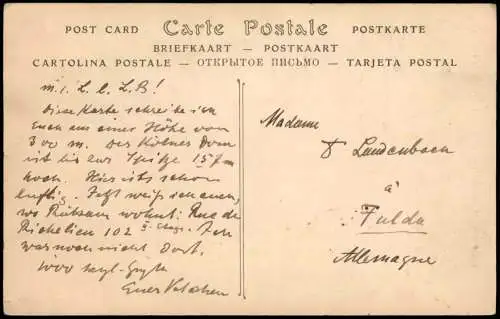 POST CARD Carte Postale POSTKARTE
BRIEFKAART — POSTKAART
CARTOLINA POSTALE — ОТКРЫТОЕ ПИСЬМО — TARJETA POSTAL
M. i. L. l. L. B!
Diese Karte schreibe ich
Euch aus einer Höhe von
300 m. Der Kölner Dom
ist bis zur Spitze 157m
hoch. Hier ists schön
luftig. Jetzt weiß ich auch,
wo Rütsam wohnt: Rue de
Richelieu 102 Etage. Ich
war noch nicht dort.
1000 Grüße
Euer
Madame
Laudenbach
à
Fulda
Allemagne